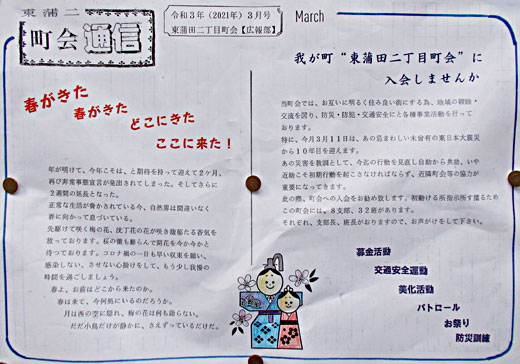 東蒲二
町会通信
令和3年(2021年)3月号
東蒲田二丁目町会【広報部】
March
春がきた
春がきた
どこにきた
ここに来た!
年が明けて、今年こそは、と期待を持って迎えて2ケ月、
再び非常事態宣言が発出されてしまった。そしてさらに
2週間の延長となった。
正常な生活が脅かされている今、自然界は間違いなく
春に向かって息づいている。
先駆けて咲く梅の花、沈丁花の花が咲き馥郁たる香気を
放っております。桜の蕾も膨らんで開花を今か今かと
待っております。コロナ禍の一日も早い収束を願い、
感染しない、させない心掛けをして、もう少し我慢の
時間を過ごしましょう。
春よ、お前はどこから来たのか。
春は来て、今何処にいるのだろうか。
月は西の空に隠れ、梅の花は何も語らない。
ただ小鳥だけが静かに、さえずっているだけだ。
我が町“東蒲田二丁目町会”に
入会しませんか
当町会では、お互いに明るく住み良い街にする為、地域の親睦・
交流を図り、防災・防犯・交通安全にと各種事業活動を行って
おります。
特に、今月3月11日は、あの忌まわしい未曾有の東日本大震災
から10年目を迎えます。
あの災害を教訓として、今迄の行動を見直し自助から共助、いや
近助こそ初期行動を起こさなければならず、近隣町会等の協力が
重要になってきます。
此の際、町会への入会をお勧め致します。初動ける所指示所す援るため
この町会には、8支部、32班があります。
それぞれ、支部長、班長がおりますので、お声がけをして下さい。
募金活動
交通安全運動
美化活動
パトロール
お祭り
防災訓練